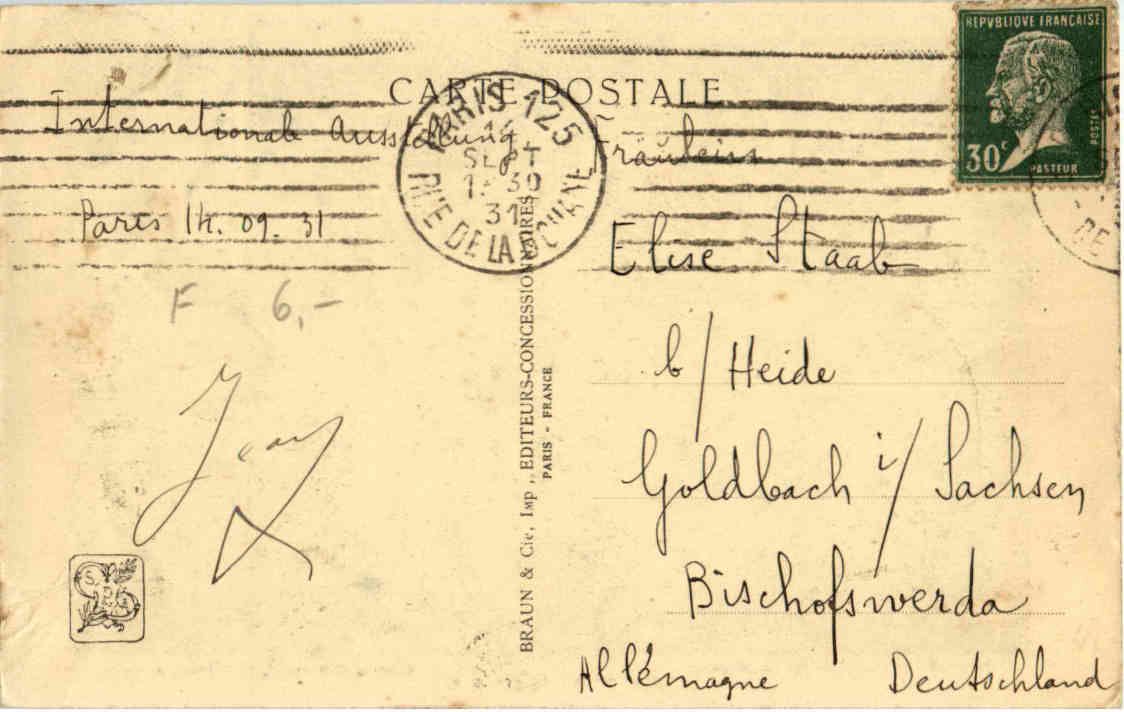 CARTE POSTALE
REPVBLIQVE FRANÇAISE
30c
POSTES
PASTEUR
PARIS 125
14
SEPT
31
RUE DE LA
Internationale Ausstellung
Paris 14. 09. 31
F 6,-
BRAUN & Cie, Imp., EDITEURS-CONCESSIONNAIRES
PARIS - FRANCE
Fräulein
Elise Staab
b/Heide
Goldbach i/Sachsen
Bischofswerda
Allémagne Deutschland